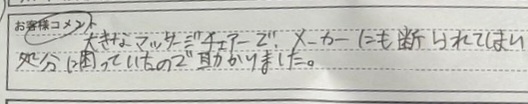 お客様コメント
大きなマッサージチェアーで、メーカーにも断られてしまい
処分に困っていたので助かりました。